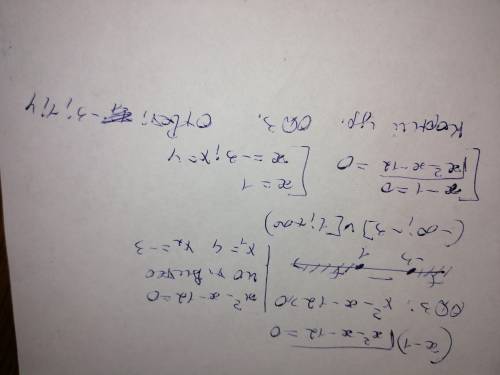 (x-1)√x²-x-12 = 0
ОДЗ: x²-x-12≥0
x²-x-12=0
по т. Виета
x₁=4 x₂=-3
-3 1
(-∞; -3] ∪ [1; +∞)
x-1=0
√x²-x-12 = 0
x=1
x=-3; x=4
Корни ур. ОДЗ. Ответ: -3; 1; 4